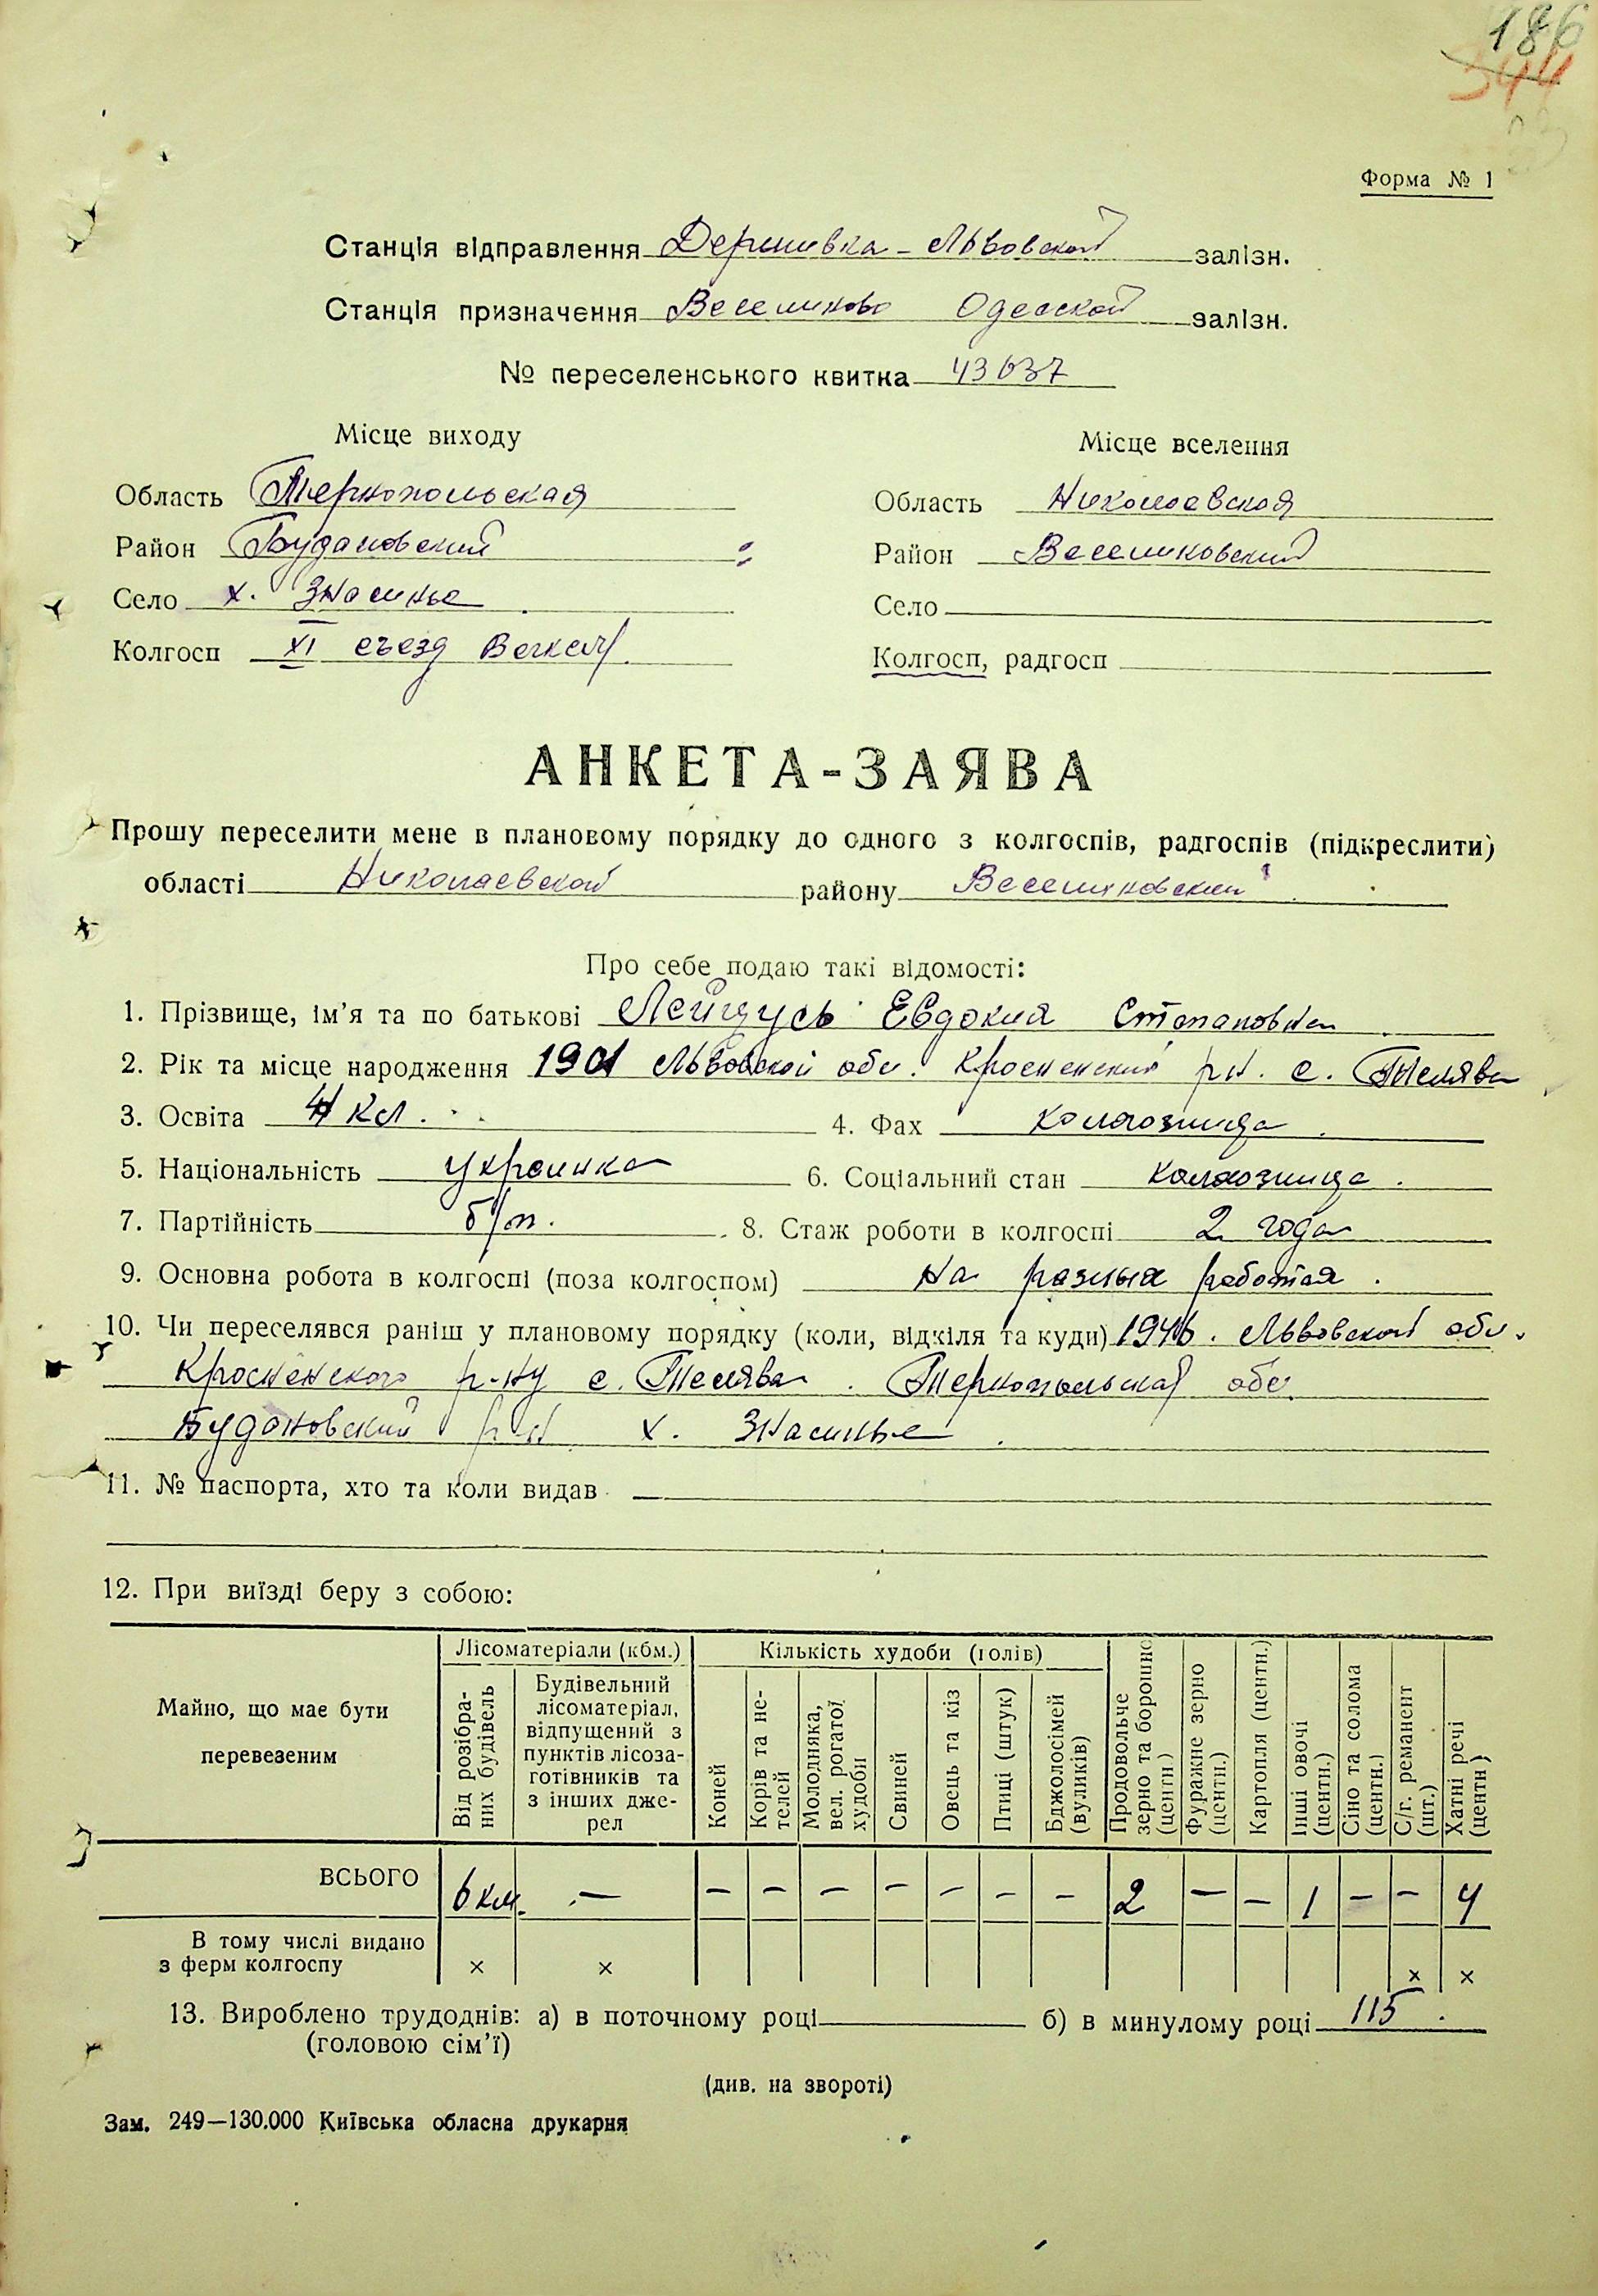 186
344
Форма № 1
Станція відправлення Деренивка - Львовской залізн.
Станція призначення Веселиново Одесской залізн.
№ переселенського квитка 43637
Місце виходу Місце вселення
Область Тернопольская Область Николаевская
Район Будановский Район Веселиновский
Село х. Знасинье Село
Колгосп XI съезд Влксм Колгосп, радгосп
АНКЕТА-ЗАЯВА
Прошу переселити мене в плановому порядку до одного з колгоспів, радгоспів (підкреслити)
області Николаевской району Веселиновский
Про себе подаю такі відомості:
1. Прізвище, ім’я та по батькові Лейцусь Евдокия Степановна
2. Рік та місце народження 1901 Львовской обл. Кросненский р-н. с. Телява
3. Освіта 4 кл. 4. Фах колхозница
5. Національність украинка 6. Соціальний стан колхозница.
7. Партійність б/п. 8. Стаж роботи в колгоспі 2 года
9. Основна робота в колгоспі (поза колгоспом) на разных работах.
10. Чи переселявся раніш у плановому порядку (коли, відкіля та куди) 1946. Львовской обл.
Кросненского р-ну с. Телява. Тернопольская обл.
Будановский р-н х. Знасинье.
11. № паспорта, хто та коли видав —
12. При виїзді беру з собою:
Майно, що має бути перевезеним
Лісоматеріали (кбм.) Кількість худоби (голів)
Від розібраних будівель
Будівельний лісоматеріал, відпущений з пунктів лісозаготівників та з інших джерел
Коней
Корів та нетелей
Молодняка, вел. рогатої худоби
Свиней
Овець та кіз
Птиці (штук)
Бджолосімей (вуликів)
Продовольче зерно та борошно (центн.)
Фуражне зерно (центн.)
Картопля (центн.)
Інші овочі (центн.)
Сіно та солома (центн.)
С/г. реманент (шт.)
Хатні речі (центн)
ВСЬОГО 6 км. — — — — — — — — 2 — — 1 — — 4
В тому числі видано
з ферм колгоспу × × × ×
13. Вироблено трудоднів: а) в поточному році б) в минулому році 115.
(головою сім’ї)
(див. на звороті)
Зам. 249—130.000 Київська обласна друкарня